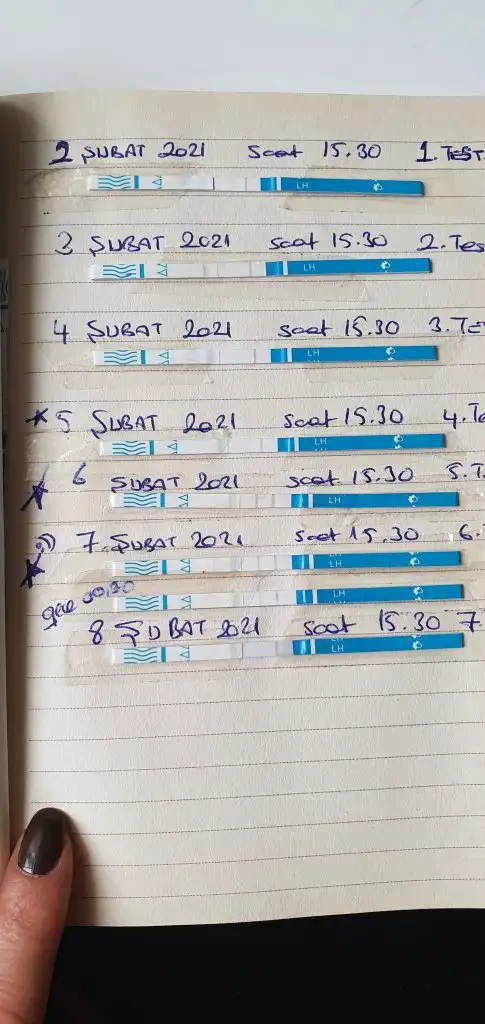 2 ŞUBAT 2021 saat 15.30 1. TEST
LH
3 ŞUBAT 2021 saat 15.30 2. Tes
LH
4 ŞUBAT 2021 saat 15.30 3. Te
LH
5 ŞUBAT 2021 saat 15.30 4. Te
LH
LH
6 ŞUBAT 2021 saat 15.30 5. T
LH
7. ŞUBAT 2021 saat 15.30 6.
LH
LH
gece
LH
LH
8 ŞUBAT 2021 saat 15.30 7
LH
LH